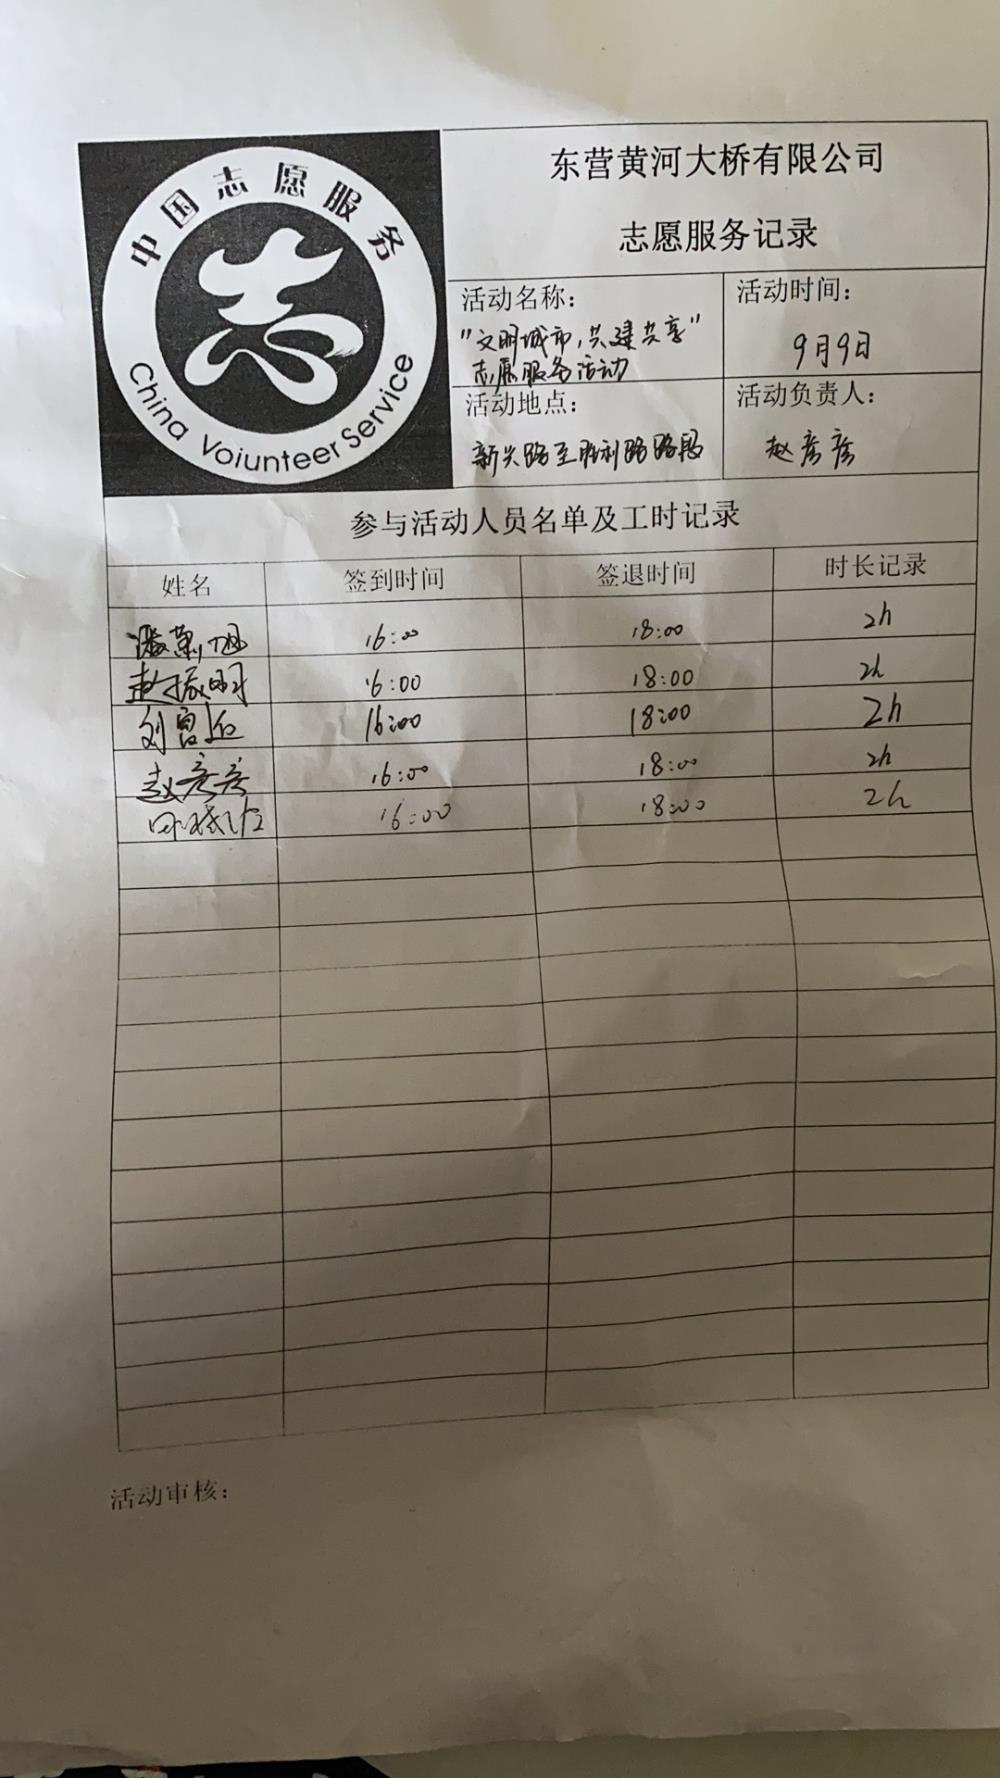 中国志愿服务
志
China Voiunteer Service
东营黄河大桥有限公司
志愿服务记录
活动名称：
"文明城市，共建共享"
志愿服务活动
活动时间：
9月9日
活动地点：
新兴路至胜利路路段
活动负责人：
赵彦彦
参与活动人员名单及工时记录
姓名 签到时间 签退时间 时长记录
16:00 18:00 2h
赵振明 16:00 18:00 2h
刘 16:00 18:00 2h
赵彦彦 16:00 18:00 2h
16:00 18:00 2h
活动审核：